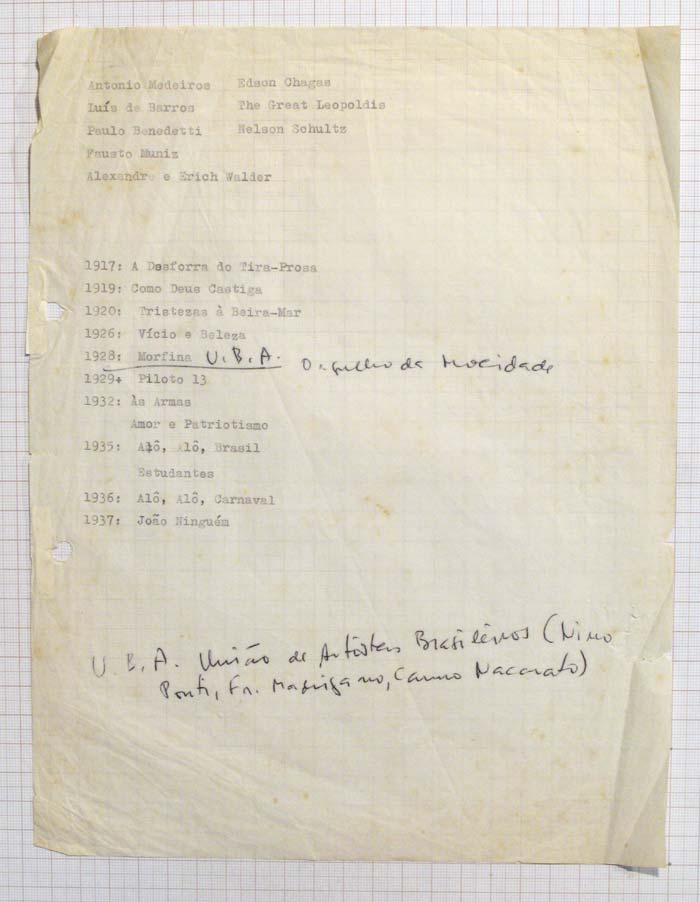 Antonio Medeiros Edson Chagas
Luís de Barros The Great Leopoldis
Paulo Benedetti Nelson Schultz
Fausto Muniz
Alexandre e Erich Walder
1917: A Desforra do Tira-Prosa
1919: Como Deus Castiga
1920: Tristezas à Beira-Mar
1926: Vício e Beleza
1928: Morfina U.B.A. Orgulho da Mocidade
1929+ Piloto 13
1932: Às Armas
Amor e Patriotismo
1935: Alô, Alô, Brasil
Estudantes
1936: Alô, Alô, Carnaval
1937: João Ninguém
U.B.A. União de Artistas Brasileiros (Nino
Ponti, Fr. Madrigano, Carmo Nacarato)